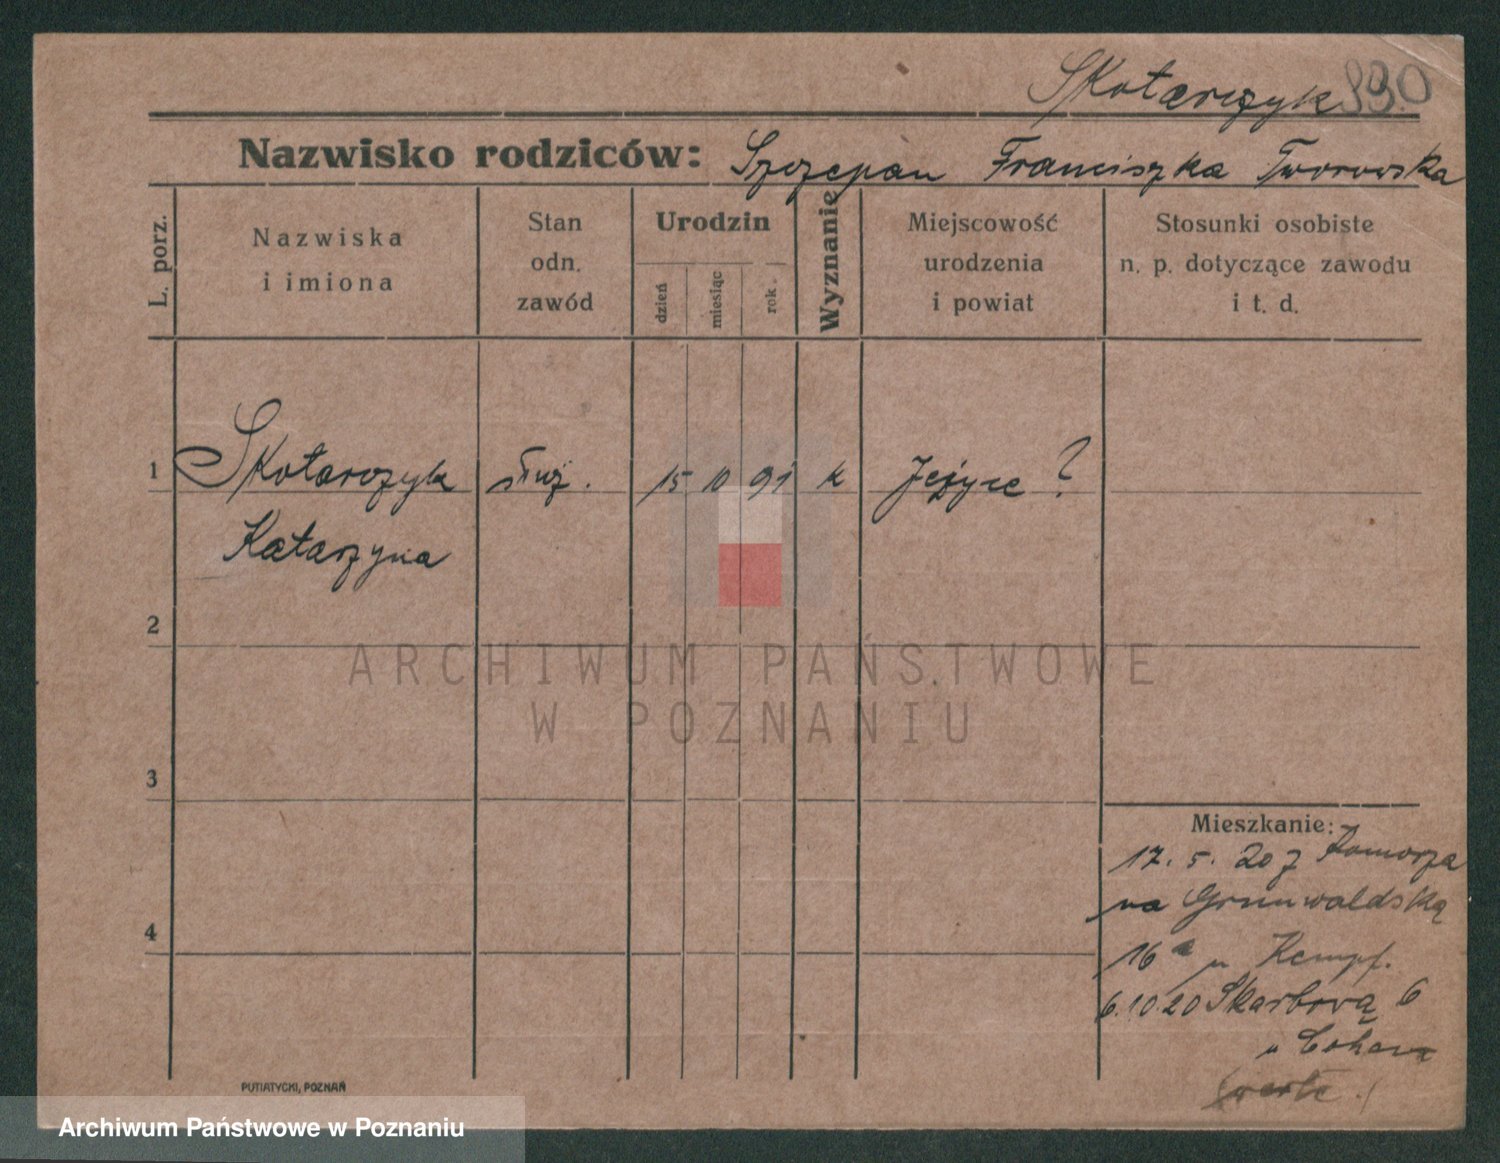 Skotarczyk 890
Nazwisko rodziców: Szczepan Franciszka Tworowska
L. porz.
Nazwiska
i imiona
Stan
odn.
zawód
Urodzin
dzień
miesiąc
rok.
Wyznanie
Miejscowość
urodzenia
i powiat
Stosunki osobiste
n. p. dotyczące zawodu
i t. d.
1 Skotarczyk służ. 15 10 91 k Jeżyce ?
Katarzyna
2
3
4
ARCHIWUM PAŃSTWOWE
W POZNANIU
Mieszkanie:
17. 5. 20 z Pomorza
na Grunwaldską
16a u Kempf.
6.10.20 Skarbową 6
u
(verte.)
PUTIATYCKI, POZNAŃ
Archiwum Państwowe w Poznaniu